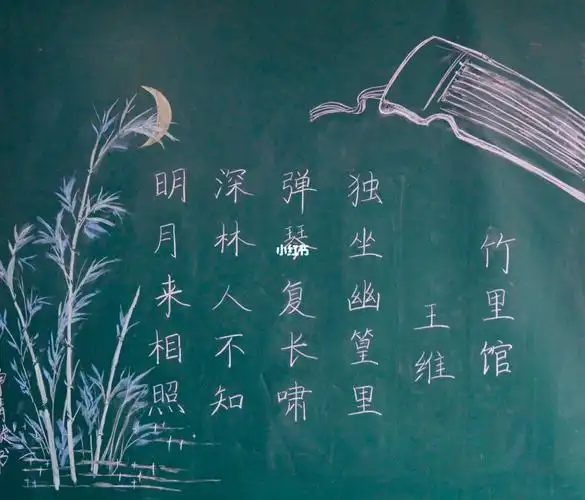 竹里馆
王维
独坐幽篁里
弹琴复长啸
深林人不知
明月来相照
小红书